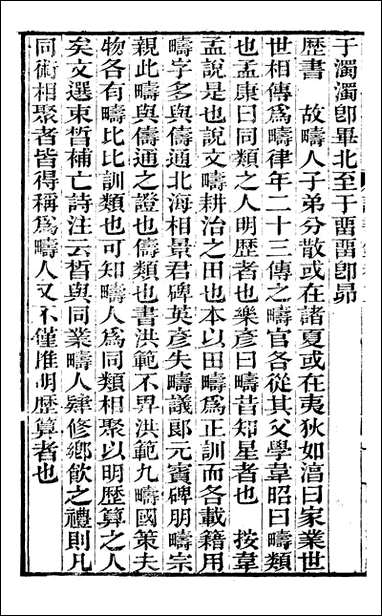 于濁濁卽畢北至于畱畱卽昴
歷書　故疇人子弟分散或在諸夏或在夷狄如湻曰家業世
世相傳爲疇律年二十三傳之疇官各從其父學韋昭曰疇類
也孟康曰同類之人明歷者也樂彦曰疇昔知星者也　按韋
孟說是也說文疇耕治之田也本以田疇爲正訓而各載籍用
疇字多與儔通北海相景君碑英彦失疇議郎元賓碑朋疇宗
親此疇與儔通之證也儔類也書洪範不畀洪範九疇國策夫
物各有疇比比訓類也可知疇人爲同類相聚以明歷算之人
矣文選束晳補亡詩注云晳與同業疇人肄修鄉飲之禮則凡
同術相聚者皆得稱爲疇人又不僅推明歷算者也